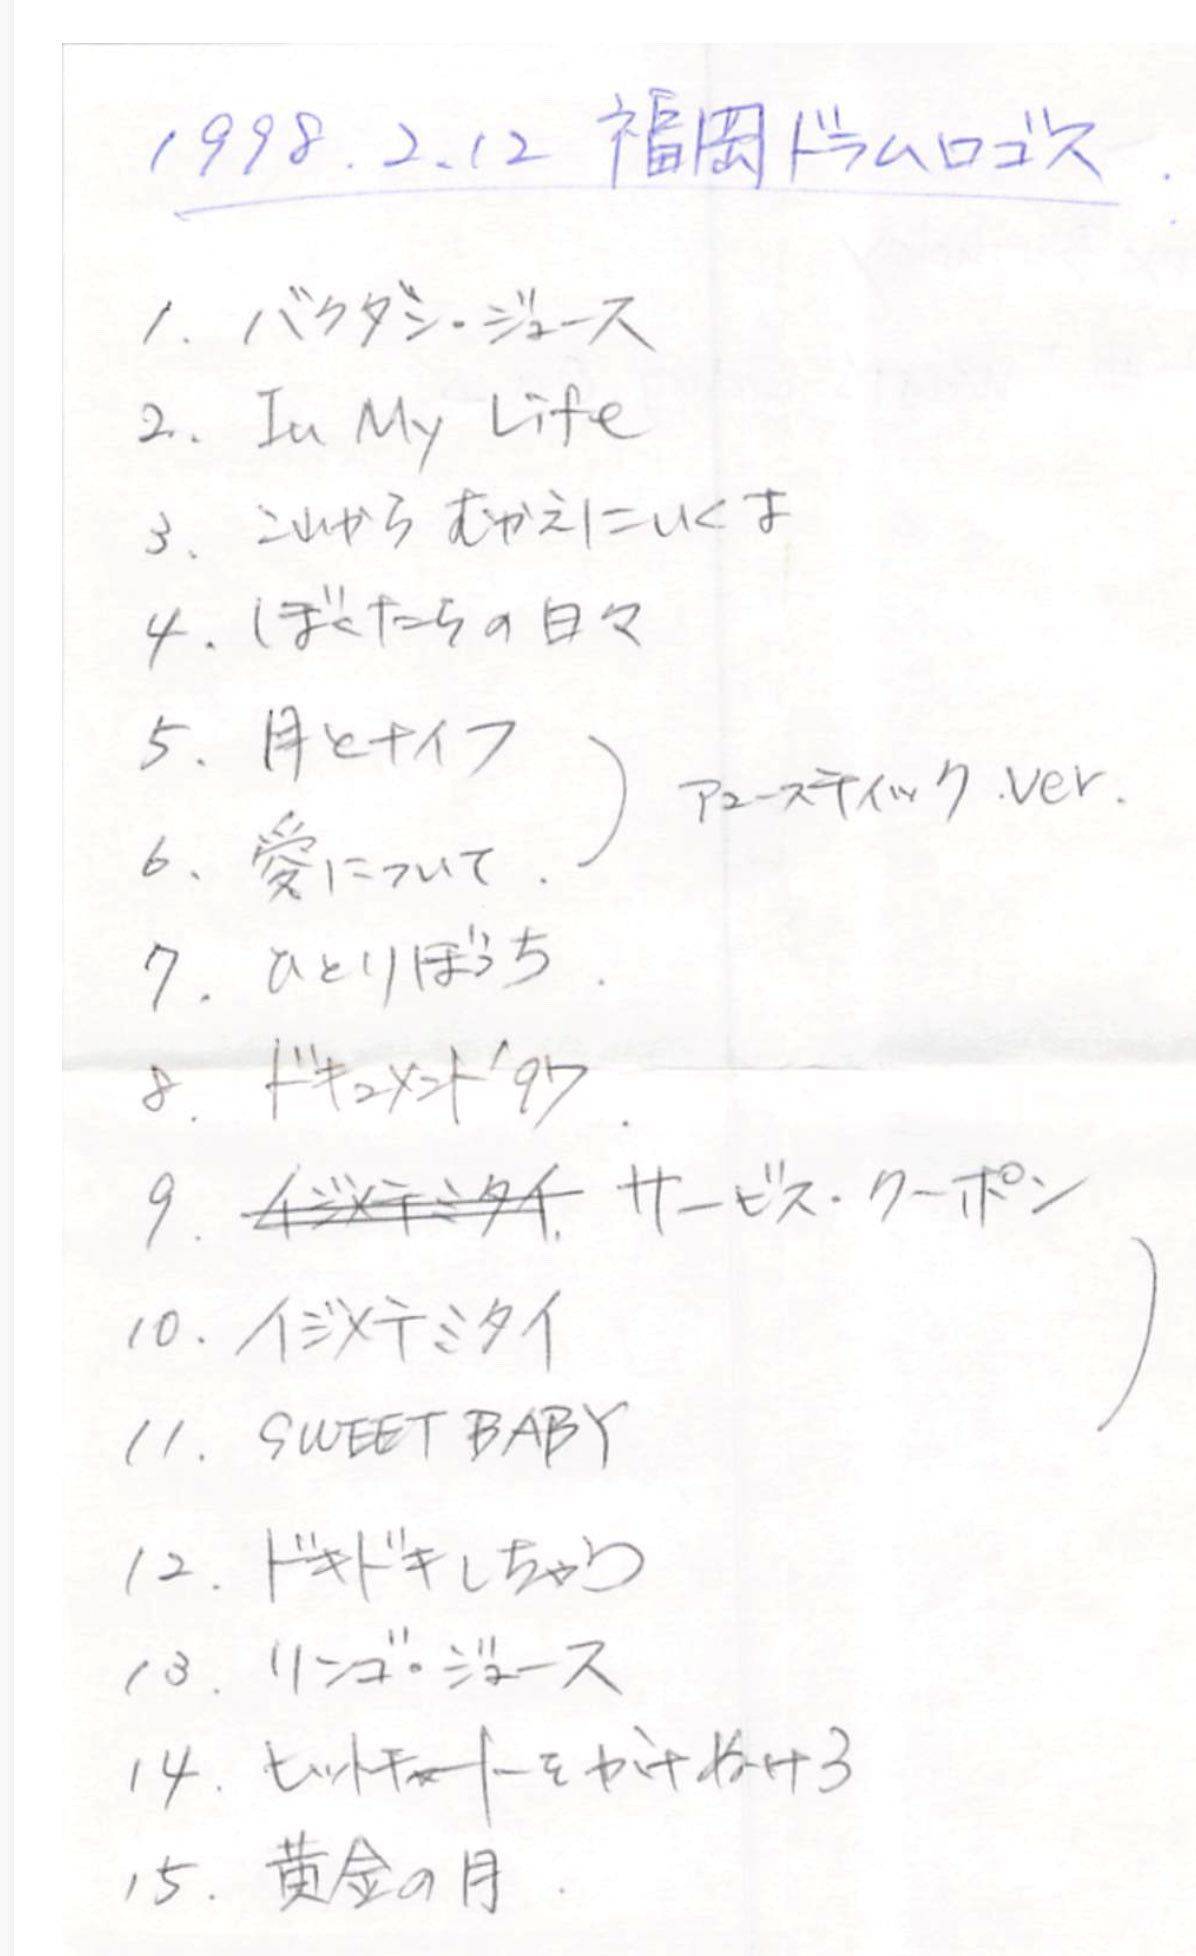 1998.2.12 福岡ドラムロゴス
1. バクダン・ジュース
2. In My Life
3. これから むかえにいくよ
4. ぼくたちの日々
5. 月とナイフ
アコースティック.ver.
6. 愛について.
7. ひとりぼっち.
8. ドキュメント'97.
9. イジメテミタイ. サービス・クーポン
10. イジメテミタイ
11. SWEET BABY
12. ドキドキしちゃう
13. リンゴ・ジュース
14. ヒットチャートをかけぬけろ
15. 黄金の月.